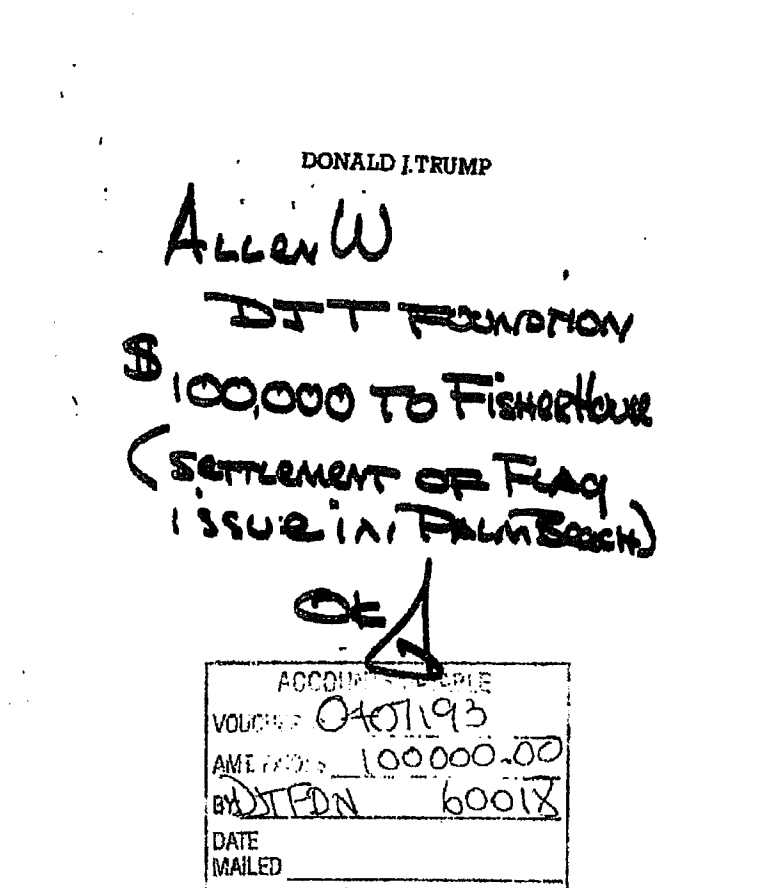 DONALD J. TRUMP
Allen W
DJT FOUNDATION
$100,000 TO FisherHouse
(settlement of Flag
issue in Palm Beach)
OK
ACCOUNTS PAYABLE
VOUCHER 0407193
AMT 100000.00
BY DJTFDN 60018
DATE
MAILED